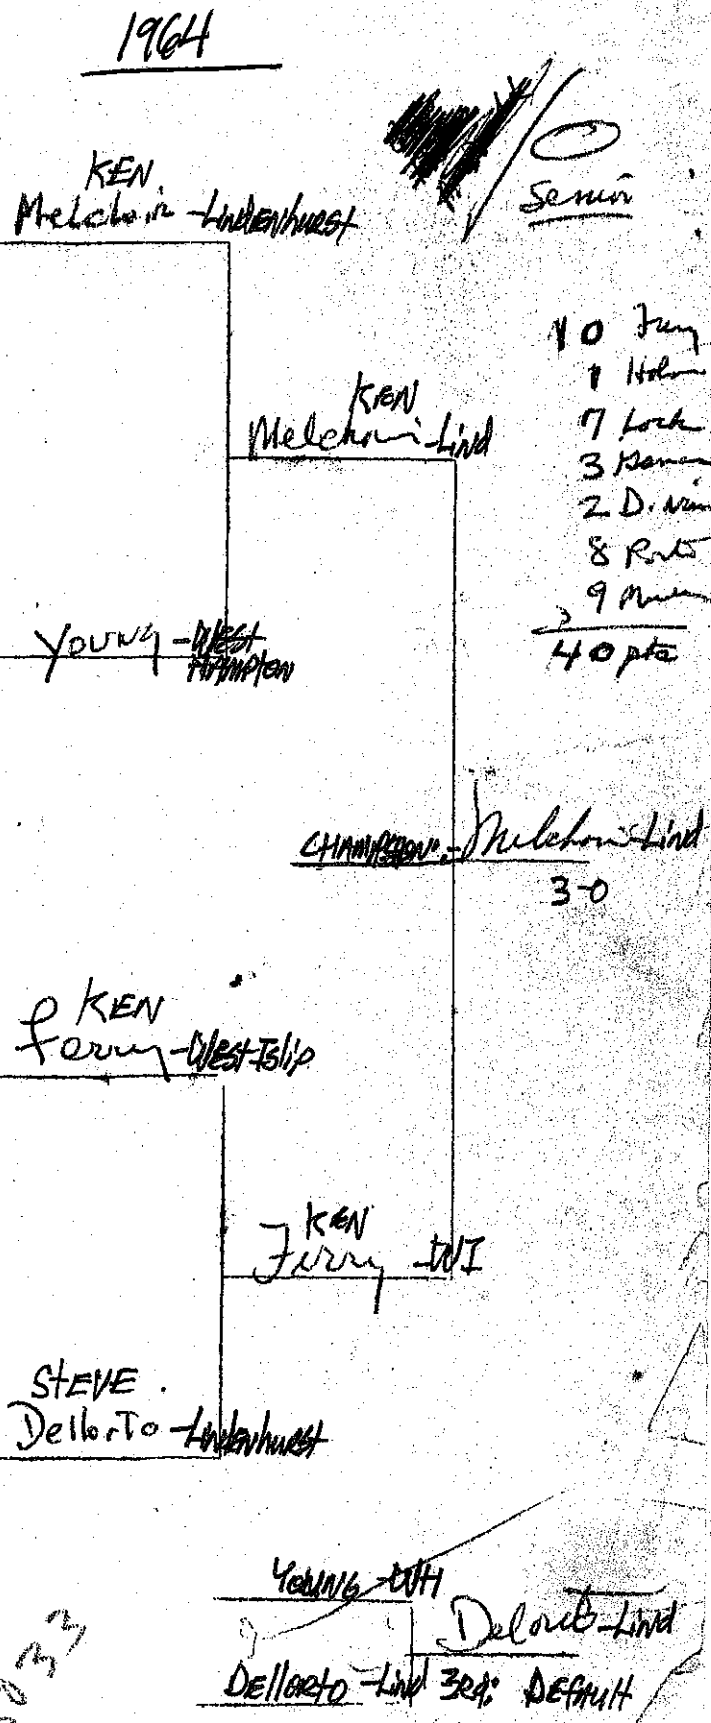 1964
Senior
KEN
Melchoir -Lindenhurst
10 Ferry
1
7 Lock
3
2 D.
8
9
40 pts
KEN
Melchoir -Lind
YOUNG -West
HAMPTON
CHAMPION:- Melchoir -Lind
3-0
KEN
Ferry -West Islip
KEN
Ferry -WI
STEVE
Dellorto -Lindenhurst
YOUNG -WH
Delorto -Lind
Dellorto -Lind 3RD: DEFAULT
33